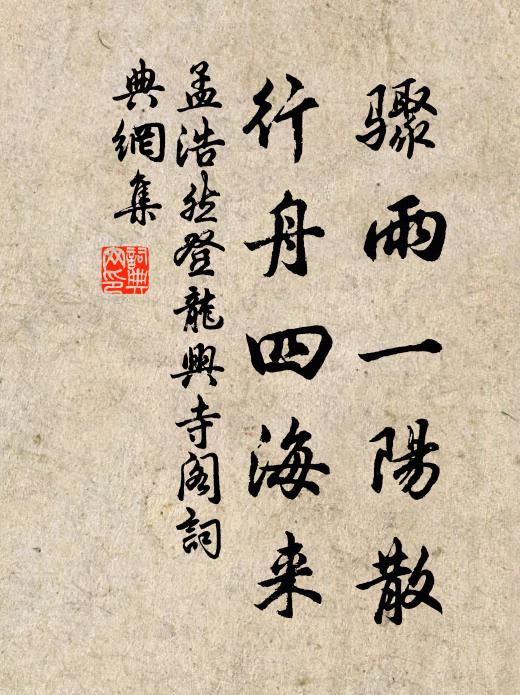 骤雨一陽散
行舟四海来
孟浩然登龍興寺阁詞
典網集
詞典
网印